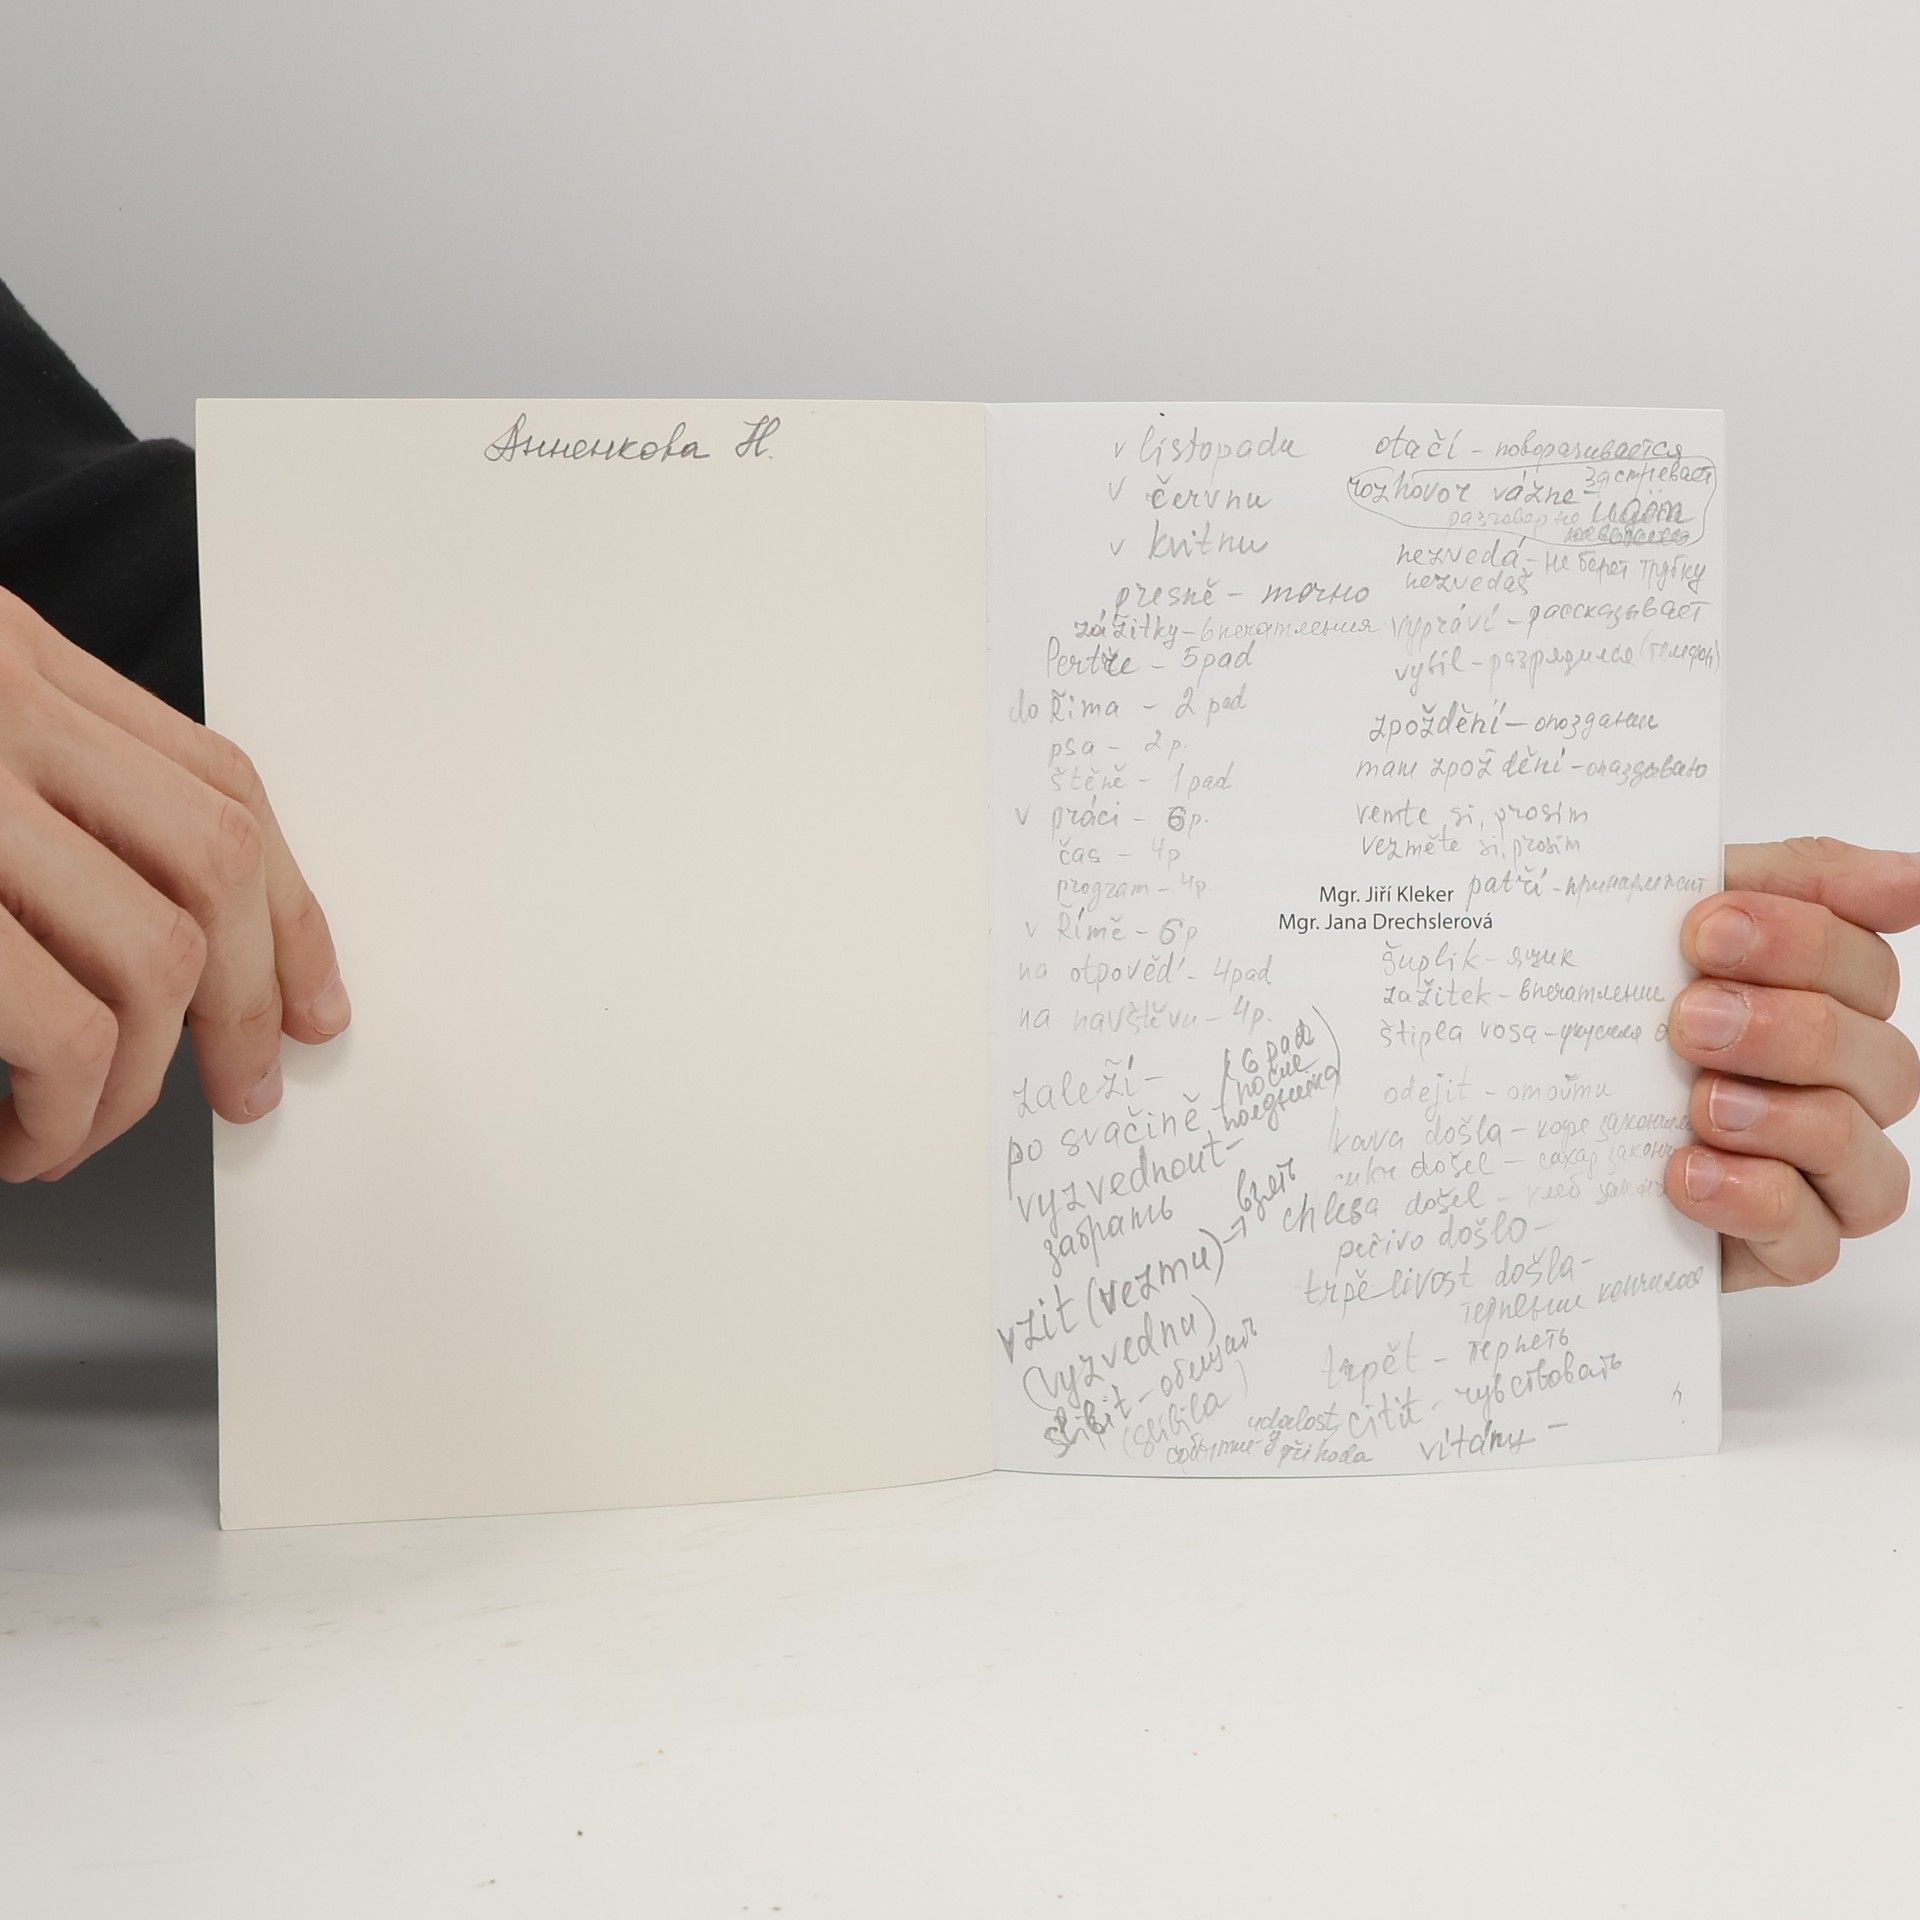 Анненкова Н.
v listopadu
v červnu
v kvitnu
přesně - точно
zážitky - впечатления
Pertře - 5 pad
do Říma - 2 pad
psa - 2 p.
štěně - 1 pad
v práci - 6 p.
čas - 4 p
program - 4 p.
v Římě - 6 p
na otpověď - 4 pad
na navštěvu - 4 p.
zaleží -
po svačině - (6 pad
после
полдника)
vyzvednout -
забрать
vzit (vezmu) → взять
(vyzvednu)
slibit - обещать
(slibila)
událost,
события - příhoda
otačí - поворачивается
rozhovor vázne - застревает
разговор не идёт
nezvedá - не берет трубку
nezvedaš
vypráví - рассказывает
vybil - разрядился (телефон)
zpoždění - опоздание
mam zpoždění - опаздываю
vemte si, prosím
vezměte si, prosím
patří - принадлежит
Mgr. Jiří Kleker
Mgr. Jana Drechslerová
šuplik -
zažitek - впечатление
štipla vosa - укусила
odejit - отойти
kava došla - кофе
cukr došel - сахар
chleba došel - хлеб
pečivo došlo -
trpělivost došla -
терпение кончилось
trpět - терпеть
citit - чувствовать
vitány -